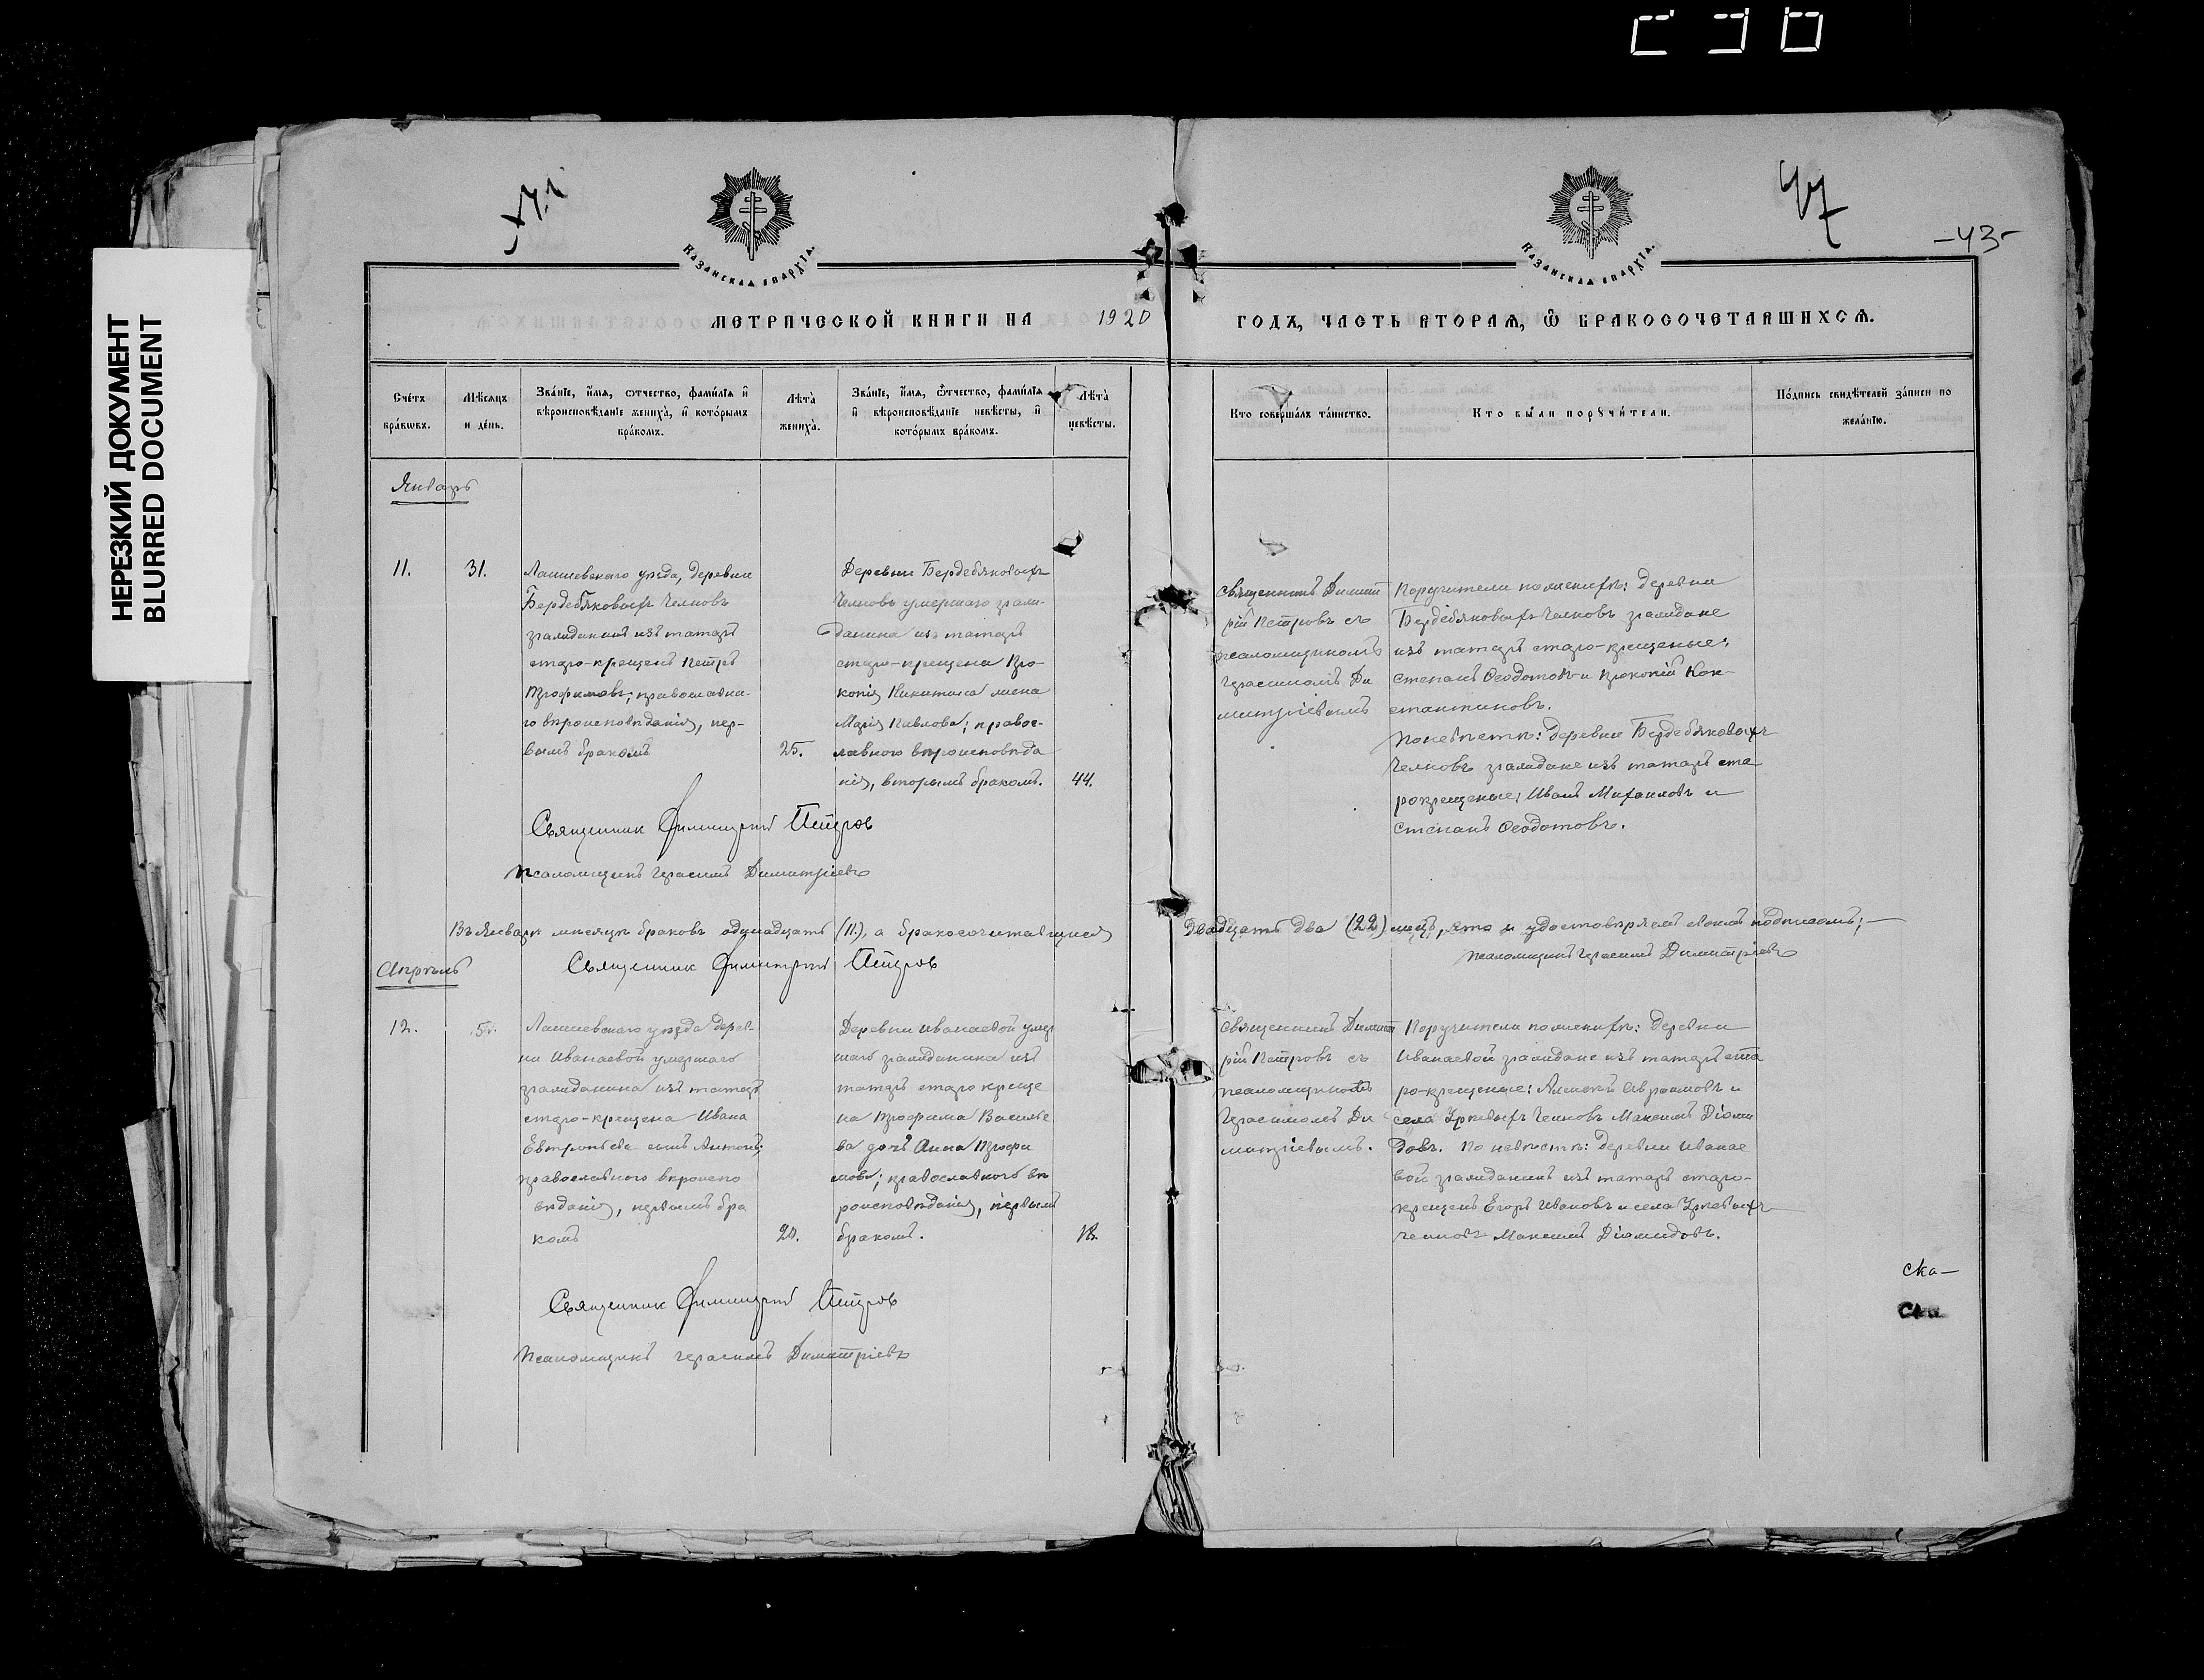 НЕРЕЗКИЙ ДОКУМЕНТ
BLURRED DOCUMENT
47
-43-
КАЗАНСКАЯ ЕПАРХІЯ.
КАЗАНСКАЯ ЕПАРХІЯ.
МЕТРИЧЕСКОЙ КНИГИ НА 1920 ГОДЪ, ЧАСТЬ ВТОРАЯ, Ѿ БРАКОСОЧЕТАВШИХСЯ.
Счетъ браковъ.
Мѣсяцъ и день.
Званіе, имя, отчество, фамилія и
вѣроисповѣданіе жениха, и которымъ
бракомъ.
Лѣта
жениха.
Званіе, имя, отчество, фамилія
и вѣроисповѣданіе невѣсты, и
которымъ бракомъ.
Лѣта
невѣсты.
Кто совершалъ таинство.
Кто были поручители.
Подпись свидѣтелей записи по
желанію.
Январь
11.
31.
Лаишевскаго уѣзда, деревни
Бердебяковыхъ Челновъ
гражданинъ изъ татаръ
старо-крещенъ Петръ
Трофимовъ; православна-
го вѣроисповѣданія, пер-
вымъ бракомъ
25.
Деревни Бердебяковыхъ
Челновъ умершаго граж-
данина изъ татаръ
старо-крещена Про-
копія Никитина жена
Марія Павлова; право-
лавного вѣроисповѣда
нія, вторымъ бракомъ.
44.
Священникъ Димит
рій Петровъ съ
псаломщикомъ
Герасимомъ Ди
митріевымъ
Поручители по женихѣ: деревни
Бердебяковыхъ Челновъ граждане
изъ татаръ старо-крещеные:
Степанъ Ѳеодотовъ и Прокопій Кон-
стантиновъ.
По невѣстѣ: деревни Бердебяковыхъ
Челновъ граждане изъ татаръ ста
рокрещеные: Иванъ Михаиловъ и
Степанъ Ѳеодотовъ.
Священник Димитрий Петров
Псаломщикъ Герасимъ Димитріевъ
Въ Январѣ мѣсяцѣ браковъ одинадцать (11.), а бракосочитавшихся двадцать два (22) лицъ, что и удостовѣряемъ своимъ подписомъ;
Священник Димитрий Петров
Псаломщикъ Герасимъ Димитріевъ
Апрѣль
12.
5.
Лаишевскаго уѣзда дерев-
ни Иванаевой умершаго
гражданина изъ татаръ
старо-крещена Ивана
Евтропьева сынъ Антонъ;
православного вѣроиспо
вѣданія, первымъ бра
комъ
20.
Деревни Иванаевой умер
шаго гражданина изъ
татаръ старо креще
на Трофима Василье
ва дочь Анна Трофи
мова; православного вѣ
роисповѣданія, первымъ
бракомъ.
18.
Священникъ Димит
рій Петровъ съ
псаломщикомъ
Герасимомъ Ди
митріевымъ.
Поручители по женихѣ: деревни
Иванаевой граждане изъ татаръ ста
рокрещеные: Алексѣй Авраамовъ и
села Челновъ Максимъ Діоми
довъ. По невѣстѣ: деревни Иванае
вой гражданинъ изъ татаръ старо-
крещенъ Егоръ Ивановъ и села
Челновъ Максимъ Діомидовъ.
Священник Димитрий Петров
Псаломщикъ Герасимъ Димитріевъ